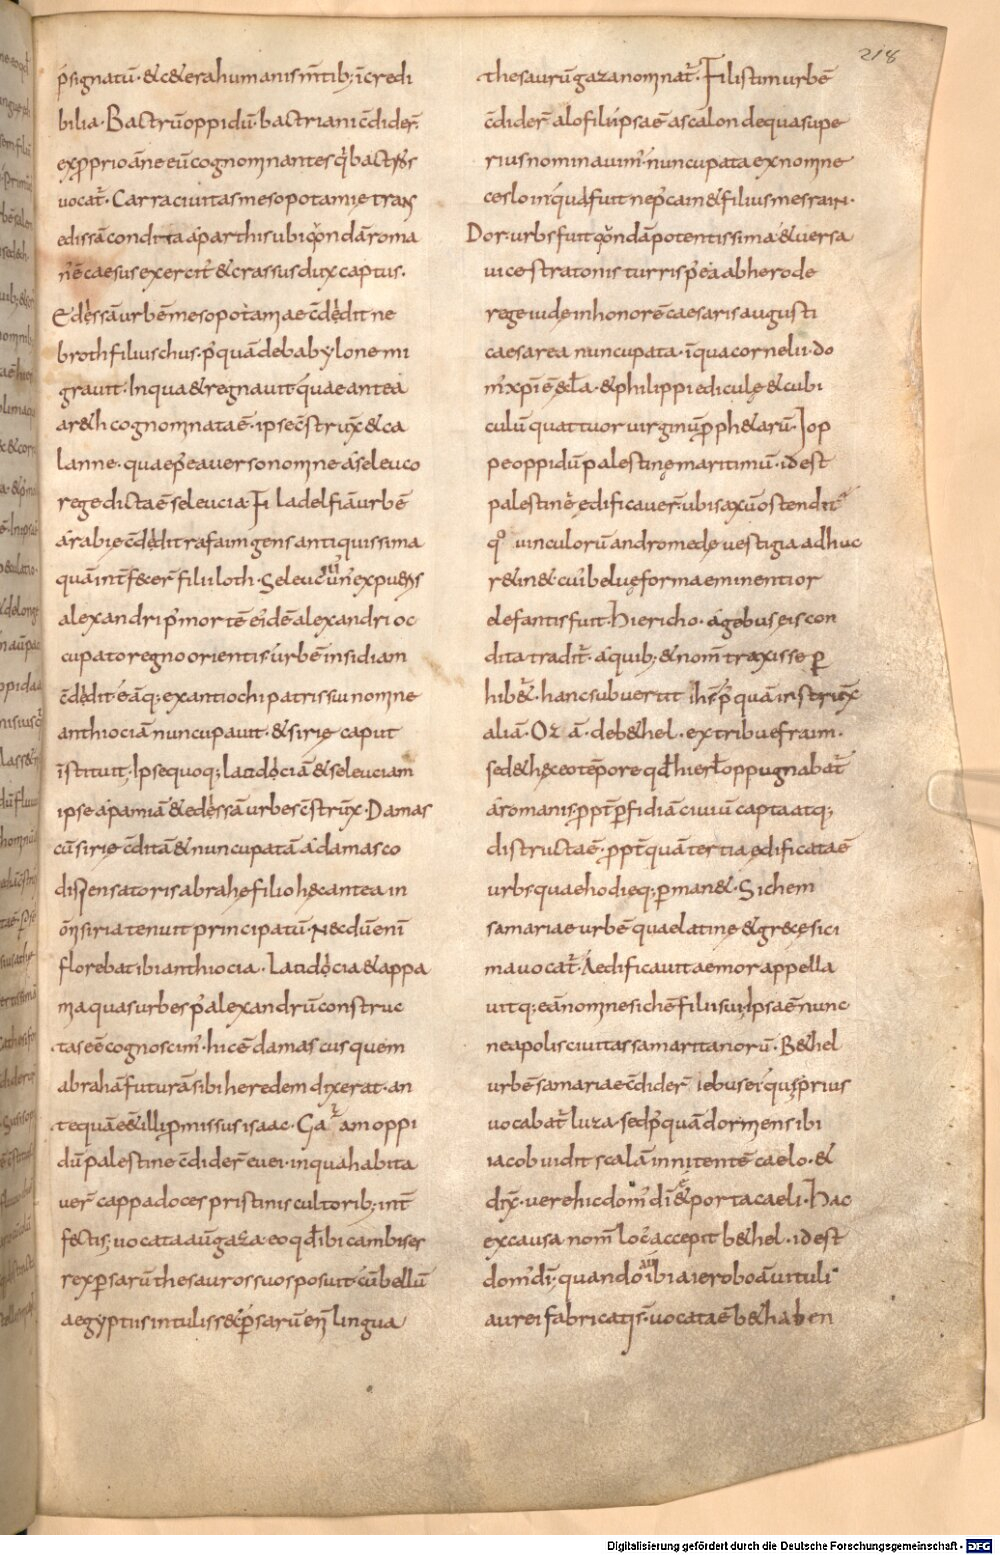 218
p̄signatū· &c&erahumanism̄tib; īcredi
bilia· Bactrūoppidū bactrianic̄dider̄
exp̱prioāne eūcognomnantes q̄ bactros
uocat̄· Carraciuitasmesopotamię trans
edissācondita aparthisubiqn̄dāroma
n̄ē caesusexercit̄ &crassusdux captus·
Edęssāurbēmesopotamaec̄dędit ne
brothfiliuschus· p̄quādebabylonemi
grauit· Inqua&regnauit quaeantea
ar&h cognomnataē· ipsec̄strux̄ &ca
lanne· quaep̄eauersonomne aseleuco
regedictaēseleucia· Filadelfiāurbē
arabięc̄dęditrafaimgensantiquissima
quāint̄f&cer̄ filiiloth· Seleucus un̄ expuens
alexandrip̄mortē eidēalexandrioc
cupatoregnoorientis urbēinsidiam
c̄dędit· eāq; exantiochipatrissuinomne
anthiociānuncupauit· &sirię caput
īstituit; Ipsequoq; laudọciā &seleuciam
ipse apamiā &edęssāurbesc̄strux̄· Damas
cūsirię c̄ditā &nuncupatā adamasco
dispensatorisabrahęfiliohęcantea in
om̄isiriatenuitprincipatū· Necdūenī
florebatibianthiocia· laudọcia &appa
maquasurbesp̄alexandrūconstruc
taseēcognoscim̄· hicēdamascusquem
abrahāfuturāsibiheredemdixerat· an
tequāe&illip̱missusisaac· Gazam oppi
dūpalestinec̄dider̄ euei· inquahabita
uer̄ cappadocespristiniscultorib; int̄
fectis; uocataaut̄gaza· eoqđibicambiser
rexpersarūthesaurossuosposuit· cūbellū
aegyptusintuliss&· p̄sarūen̄ lingua
thesaurūgazanomnat̄· Filistimurbē
c̄dider̄ alofili· ipsaēascalondequasupe
riusnominauim̄· nuncupataexnomne
cesloin· quifuit nep̄cam &filiusmesraim·
Dor· urbsfuit qn̄dāpotentissima &uersa
uicestratonis turris p̄ea abherode
regeiudęinhonorēcaesarisaugusti
caesarea nuncupata· īquacornelii· do
m̄ xp̄iē &ctā· &philippiediculę &cubi
culūquattuoruirginūp̱ph&arū· Iop
peoppidūpalestinęmaritimū· idest
palestinę edificauer̄· ubisaxūostendit̄
qº uinculorūandromedęuestigiaadhuc
r&in&· cui beluęformaeminentior
elefantisfuit· Hiericho· agebuseiscon
ditatradit̄· aquib; &nom̄ traxissep̱
hib&· hancsubuertit ih̄s· p̄quāinstrux̄
aliā· Ozā· deb&hel· extribuefraim·
sed&hęceotēporeqđhierl̄oppugnabat̄
aromanis· p̱pt̄p̱fidiāciuiūcaptaatq;
distructaē· p̱pt̄quātertiaędificataē
urbsquaehodieq; p̱man&· Sichem
samariaeurbēquaelatinę &gręcęsici
mauocat̄· Aedificauitaemorappella
uitq; eānomnesichēfiliisui· Ipsaēnunc
neapolisciuitassamaritanorū· B&hel
urbēsamariaec̄dider̄ iebusei· quęprius
uocabat̄ luza· sedp̄quādormensibi
iacobuiditscalāinnitentēcaelo· &
dix̄· uerehicdom̄ dī &portacaeli· Hac
excausa nom̄ loc̄ accepit b&hel· idest
dom̄ dī· quando au ibiaieroboāuituli
aureifabricati s̄· uocataē b&haben
Digitalisierung gefördert durch die Deutsche Forschungsgemeinschaft - DFG